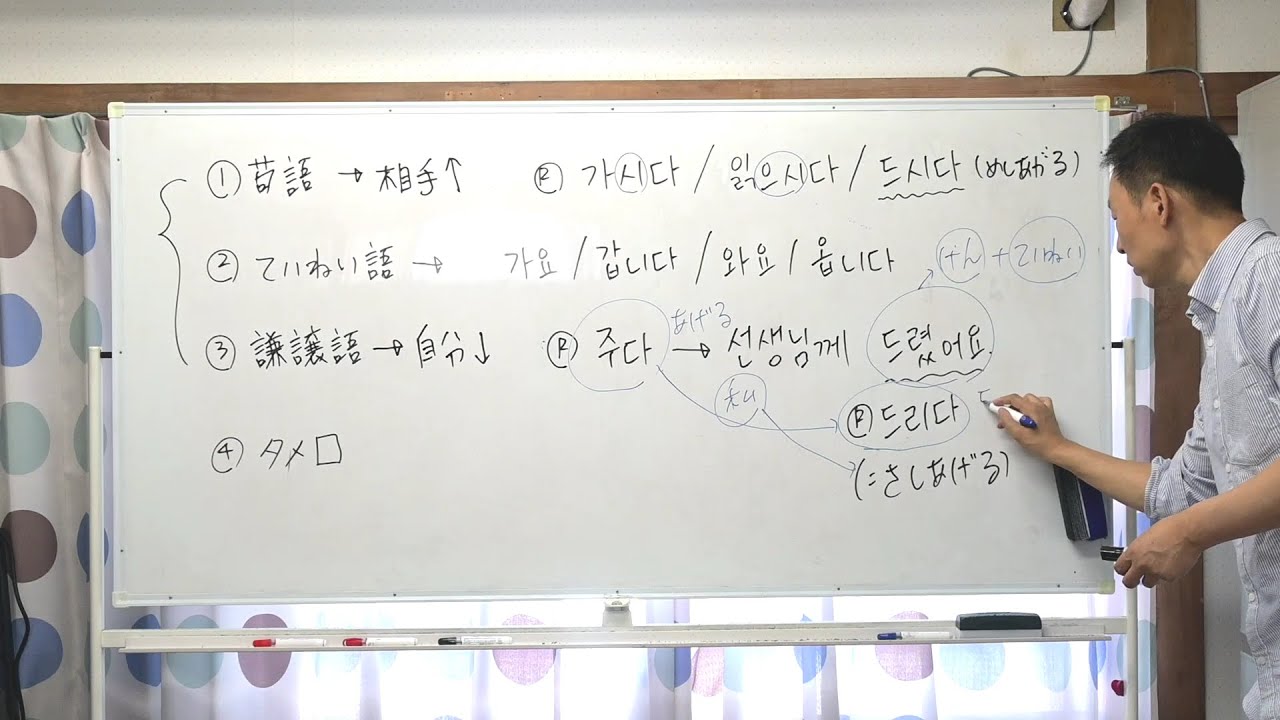 ① 苔語 → 相手↑ ㉱ 가시다 / 읽으시다 / 드시다 (めしあがる)
② ていねい語 → 가요 / 갑니다 / 와요 / 옵니다 けん + ていねい
③ 謙譲語 → 自分↓ ㉱ 주다 あげる → 선생님께 드렸어요.
㉱ 드리다
④ タメ口 (=さしあげる)